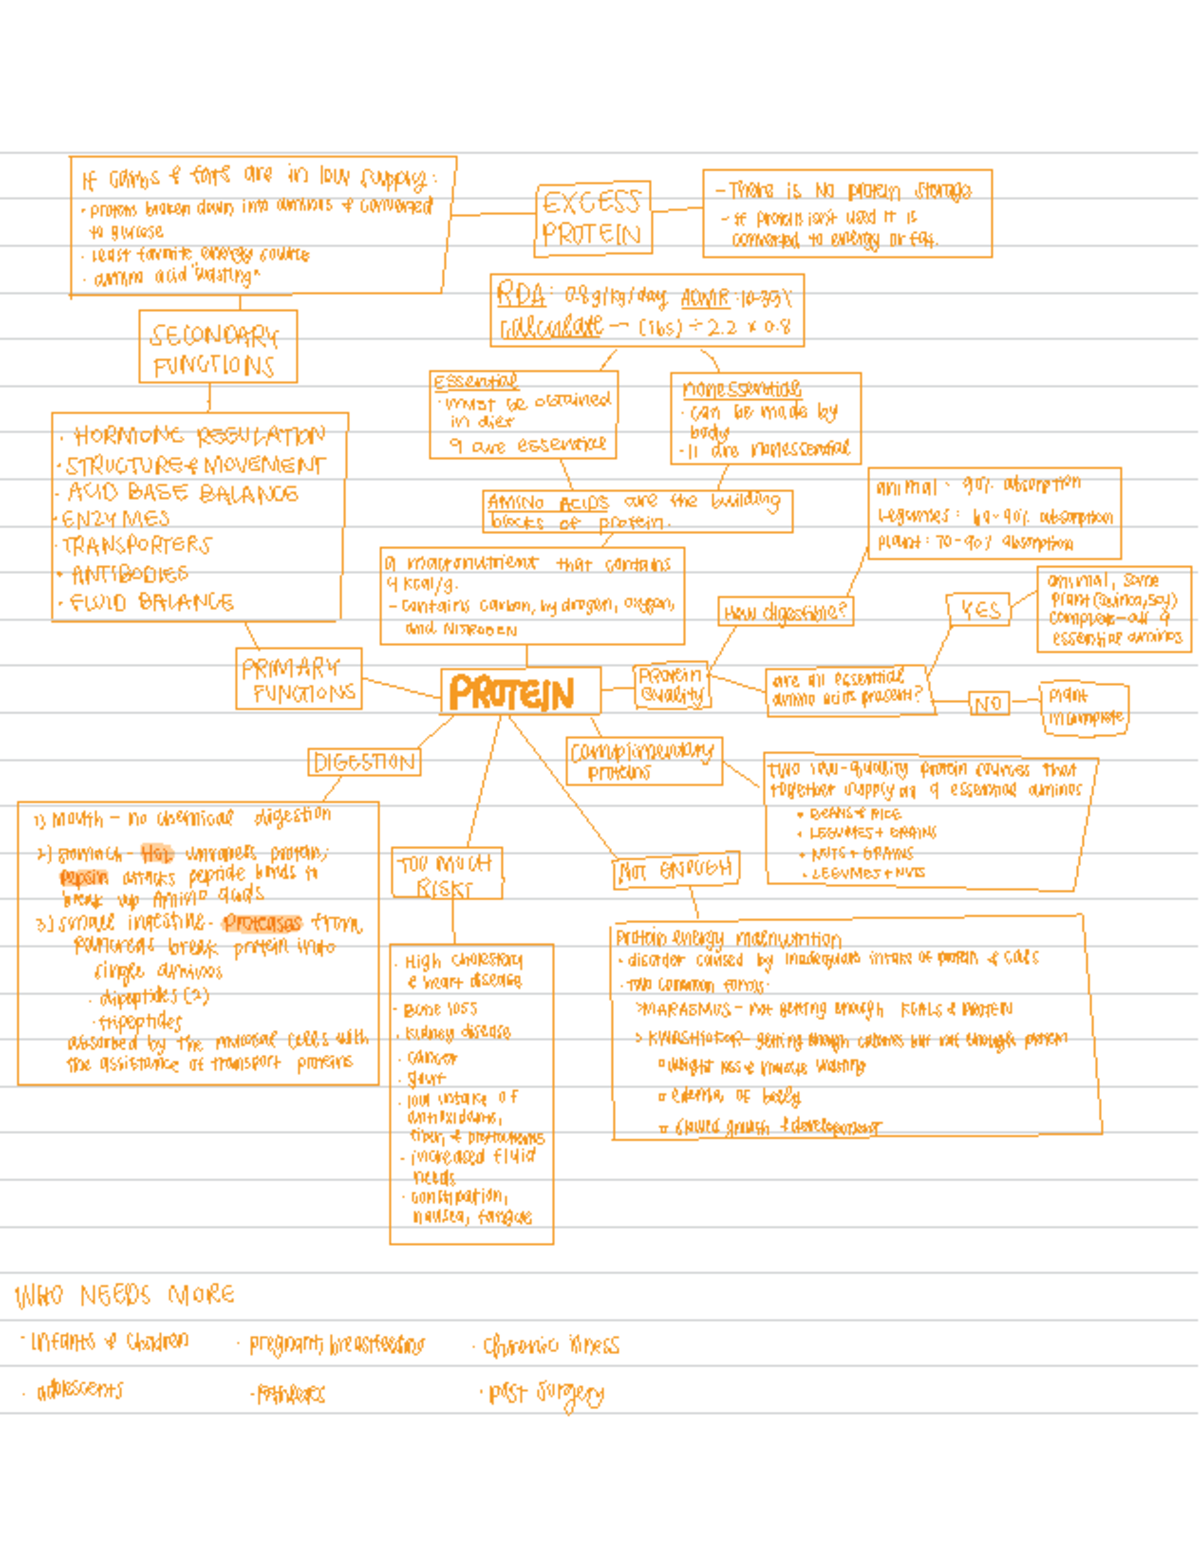 If carbs & fats are in low supply:
· proteins broken down into aminos & converted
to glucose
· least favorite energy source
· amino acid "wasting"
EXCESS
PROTEIN
- There is No protein storage
- if protein isn't used it is
converted to energy or fat.
RDA: 0.8g/kg/day ADMR: 10-35%
calculate — (lbs) ÷ 2.2 x 0.8
SECONDARY
FUNCTIONS
essential
· must be obtained
in diet
9 are essential
nonessential
· can be made by
body
· 11 are nonessential
· HORMONE REGULATION
· STRUCTURE & MOVEMENT
· ACID BASE BALANCE
· ENZYMES
· TRANSPORTERS
· ANTIBODIES
· FLUID BALANCE
AMINO ACIDS are the building
blocks of protein.
animal - 90% absorption
Legumes: 80-90% absorption
plant: 70-90% absorption
a macronutrient that contains
4 kcal/g.
- contains carbon, hydrogen, oxygen,
and NITROGEN
How digestible?
YES
animal, some
plant (quinoa, soy)
complete - all 9
essential aminos
PRIMARY
FUNCTIONS
PROTEIN
PROTEIN
Quality
are all essential
amino acids present?
NO
plant
incomplete
DIGESTION
complimentary
proteins
TWO low-quality protein sources that
together supply all 9 essential aminos
· BEANS & RICE
· LEGUMES + GRAINS
· NUTS + GRAINS
· LEGUMES + NUTS
1) Mouth - no chemical digestion
2) stomach - HCl unravels protein;
Pepsin attacks peptide bonds to
break up Amino acids
3) small intestine - Proteases from
pancreas break protein into
single aminos
· dipeptides (2)
· tripeptides
absorbed by the mucosal cells with
the assistance of transport proteins
TOO MUCH
RISKS
NOT ENOUGH
· High cholesterol
& heart disease
· Bone loss
· kidney disease
· cancer
· gout
· low intake of
antioxidants,
fiber, & phytochems
· increased fluid
needs
· constipation,
nausea, fatigue
Protein energy malnutrition
· disorder caused by inadequate intake of protein & cals
· Two common forms:
> MARASMUS - not getting enough KCALS & PROTEIN
> KWASHIORKOR - getting enough calories but not enough protein
weight loss & muscle wasting
edema of belly
slowed growth & development
WHO NEEDS MORE
· Infants & children
· pregnant, breastfeeding
· chronic illness
· adolescents
· athletes
· post surgery